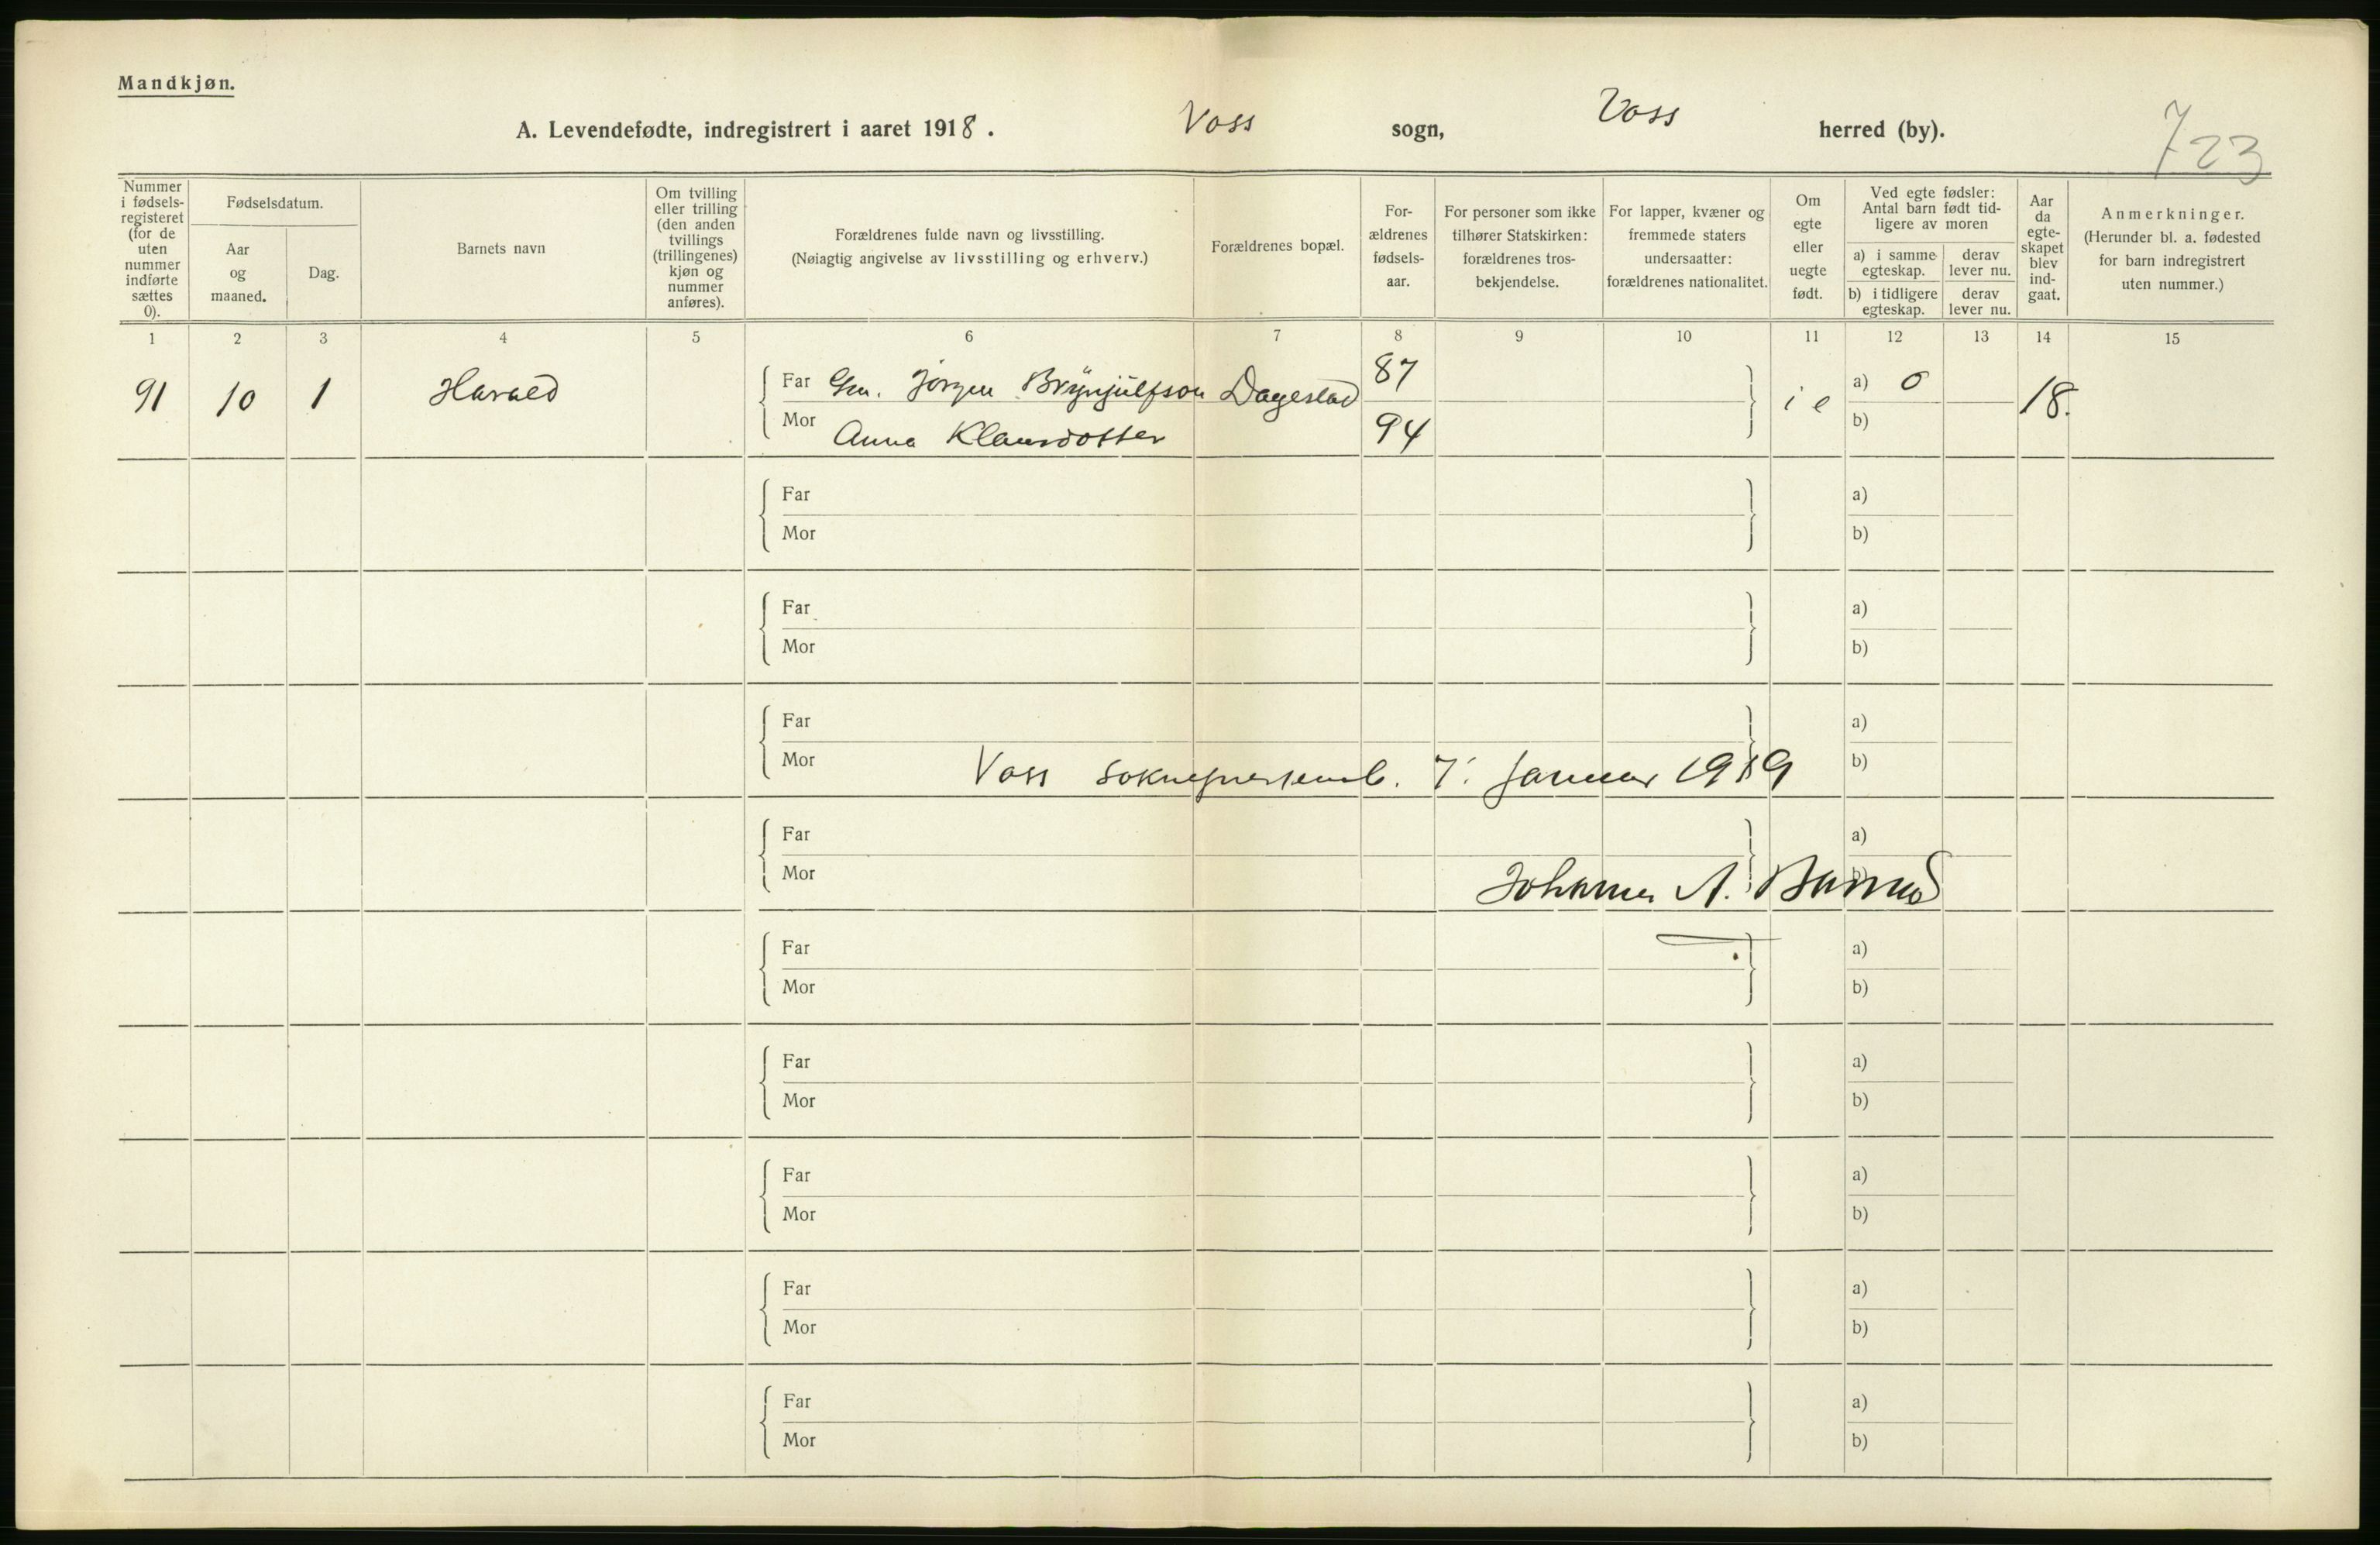 Mandkjøn.
A. Levendefødte, indregistrert i aaret 1918. Voss sogn, Voss herred (by).
723
Nummer i fødsels-registeret (for de uten nummer indførte sættes 0).
Fødselsdatum.
Aar og maaned.
Dag.
Barnets navn
Om tvilling eller trilling (den anden tvillings (trillingenes) kjøn og nummer anføres).
Forældrenes fulde navn og livsstilling.
(Nøiagtig angivelse av livsstilling og erhverv.)
Forældrenes bopæl.
For-ældrenes fødsels-aar.
For personer som ikke tilhører Statskirken: forældrenes tros-bekjendelse.
For lapper, kvæner og fremmede staters undersaatter: forældrenes nationalitet.
Om egte eller uegte født.
Ved egte fødsler: Antal barn født tid-ligere av moren
a) i samme egteskap.
derav lever nu.
b) i tidligere egteskap.
derav lever nu.
Aar da egte-skapet blev ind-gaat.
Anmerkninger.
(Herunder bl. a. fødested for barn indregistrert uten nummer.)
1 2 3 4 5 6 7 8 9 10 11 12 13 14 15
91 10 1 Harald Far Gm. Jørgen Brynjulfson Dagestad 87 i e a) 0 18.
Mor Anna Klausdotter 94 b)
Far a)
Mor b)
Far a)
Mor b)
Far a)
Mor Voss 7. Januar 1919 b)
Far a)
Mor Johannes A.
Far a)
Mor b)
Far a)
Mor b)
Far a)
Mor b)
Far a)
Mor b)
Far a)
Mor b)